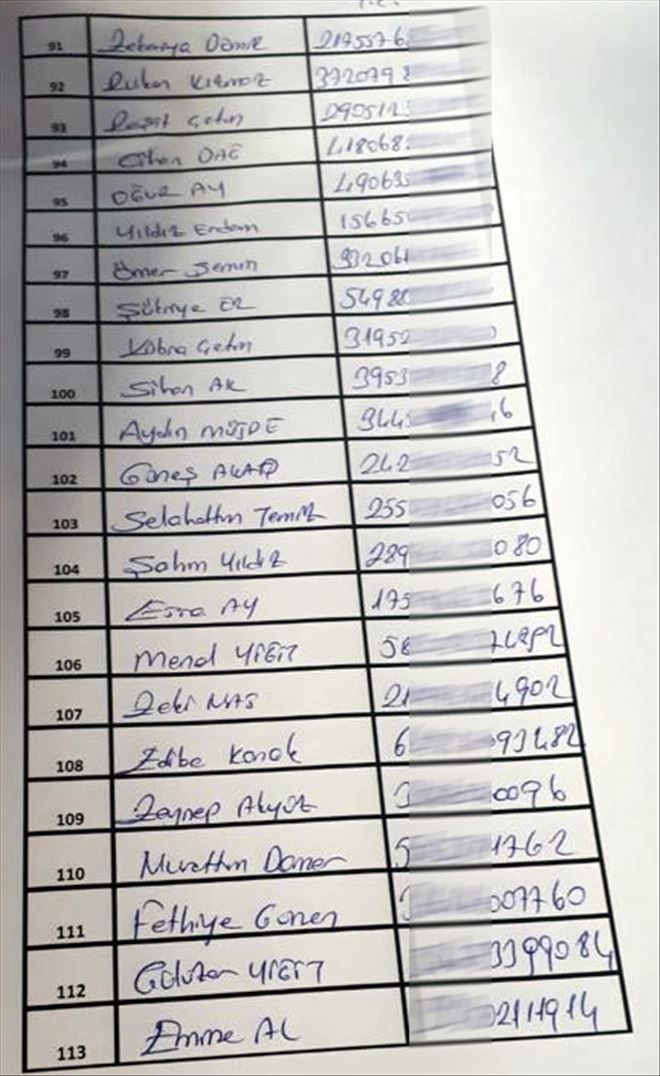 91 Zekeriya Demir 2175576
92 Rukan Kılınoz 3720798
93 Raşit Çetin 290512
94 Cihan DAĞ 418068
95 OĞUR AY 490635
96 Yıldız Erdem 15665
97 Ömer Şemin 932061
98 Şükriye ER 54988
99 Kübra Çetin 31952
100 Sihan AK 3953 8
101 Aydın MÜJDE 344 16
102 Güneş 242 52
103 Selahattin Temiz 255 056
104 Şahin Yıldız 289 080
105 Esra AY 175 676
106 Meral YİĞİT 58
107 Zeki NAS 21 4902
108 Edibe Konak 6 93482
109 Zeynep Akyüz 3 0096
110 Nurettin Doner 5 1762
111 Fethiye Gönen 007760
112 Gülüzar YİĞİT 3399084
113 Emine AL 0211914